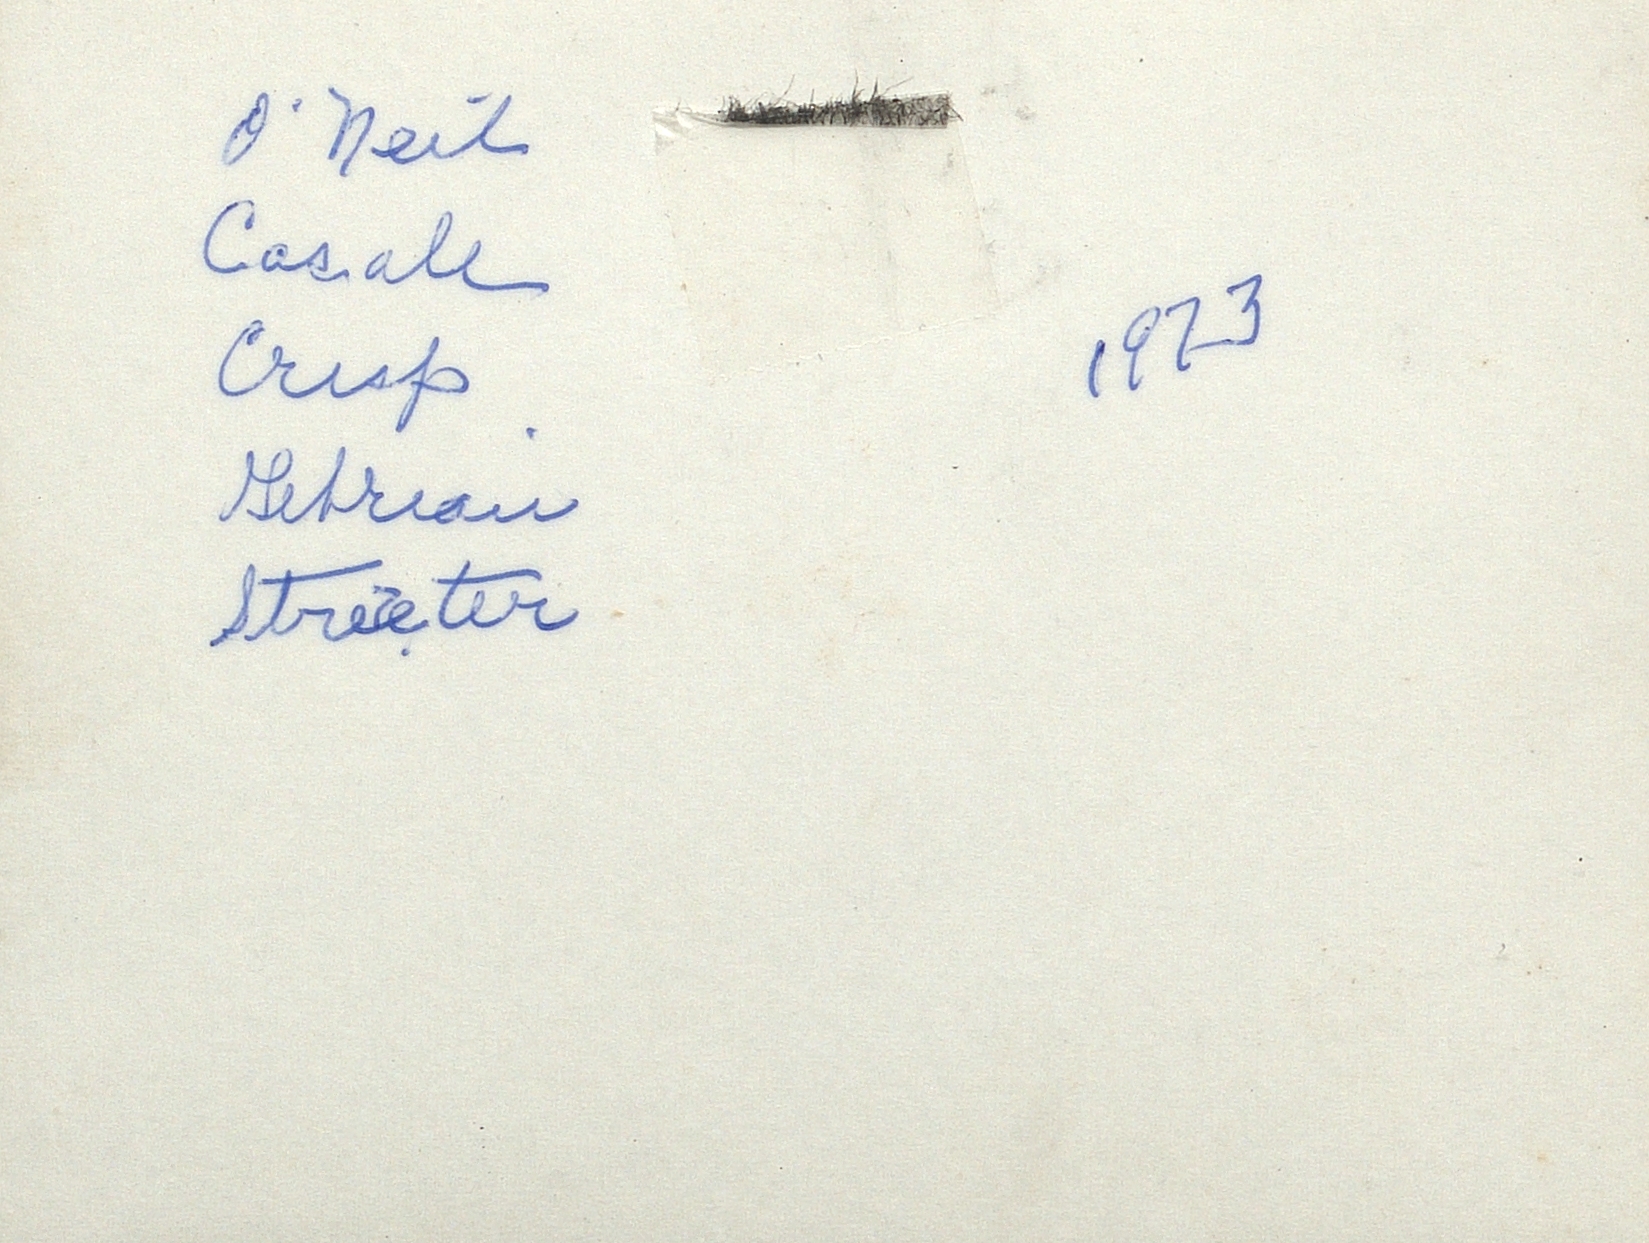 O'Neil
Casale
Crisp
Gebrian
Streeter
1973